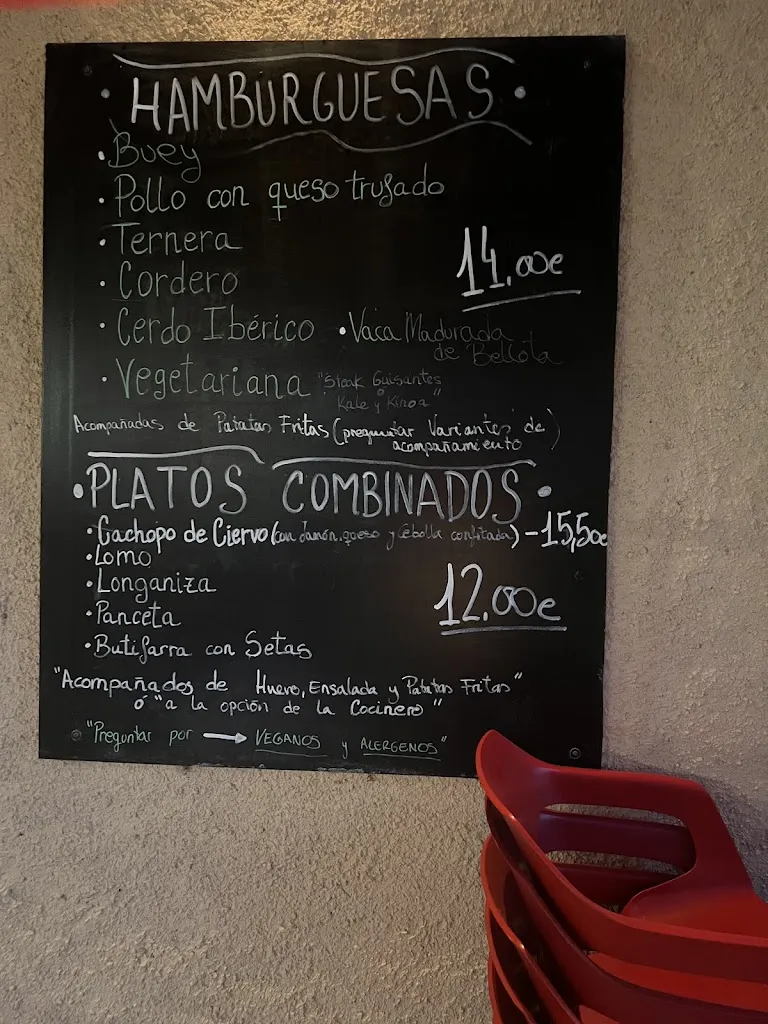 • HAMBURGUESAS •
• Buey
• Pollo con queso trufado
• Ternera
• Cordero
14.00€
• Cerdo Ibérico • Vaca Madurada
de Bellota
• Vegetariana "Steak Guisantes
Kale y Kinoa"
Acompañadas de Patatas Fritas (preguntar Variantes de
acompañamiento)
• PLATOS COMBINADOS •
• Cachopo de Ciervo (con Jamón, queso y Cebolla confitada) - 15,50€
• Lomo
• Longaniza
12.00€
• Panceta
• Butifarra con Setas
"Acompañados de Huevo, Ensalada y Patatas Fritas"
ó "a la opción de la Cocinero"
"Preguntar por → VEGANOS y ALERGENOS"